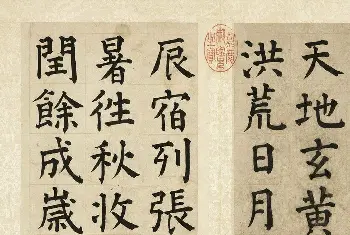 天地玄黄
洪荒日月
辰宿列張
暑往秋收
閏餘成歲